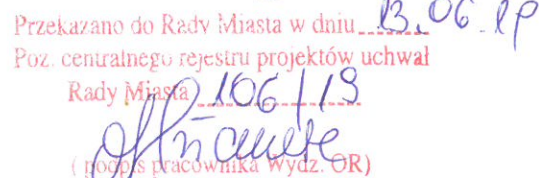 Przekazano do Rady Miasta w dniu 13.06.19
Poz. centralnego rejestru projektów uchwał
Rady Miasta 106/19
(podpis pracownika Wydz. OR)